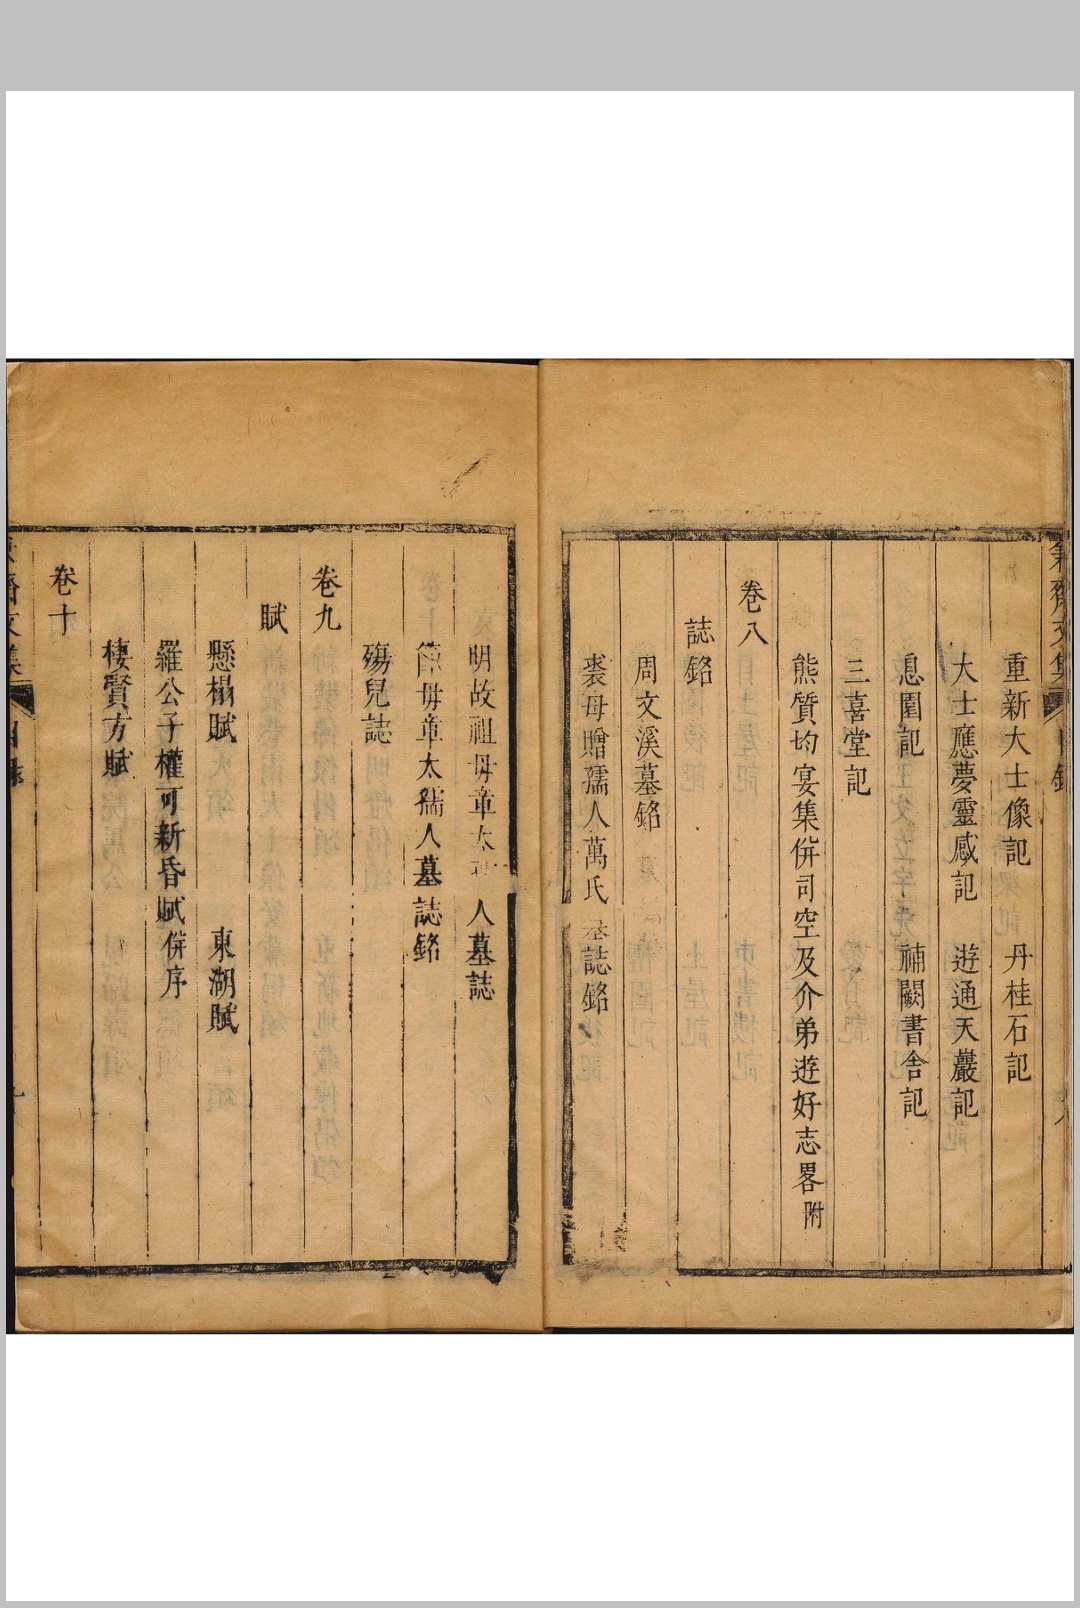 重新大士像記　丹桂石記
大士應夢靈感記　遊通天巖記
息園記　補闕書舍記
三喜堂記
熊質均宴集併司空及介弟遊好志畧附
卷八
誌銘
周文溪墓銘
裘母贈孺人萬氏墓誌銘
明故祖母章太 人墓誌
節母章太孺人墓誌銘
殤兒誌
卷九
賦
懸榻賦　東湖賦
羅公子權可新昏賦併序
棲賢方賦
卷十